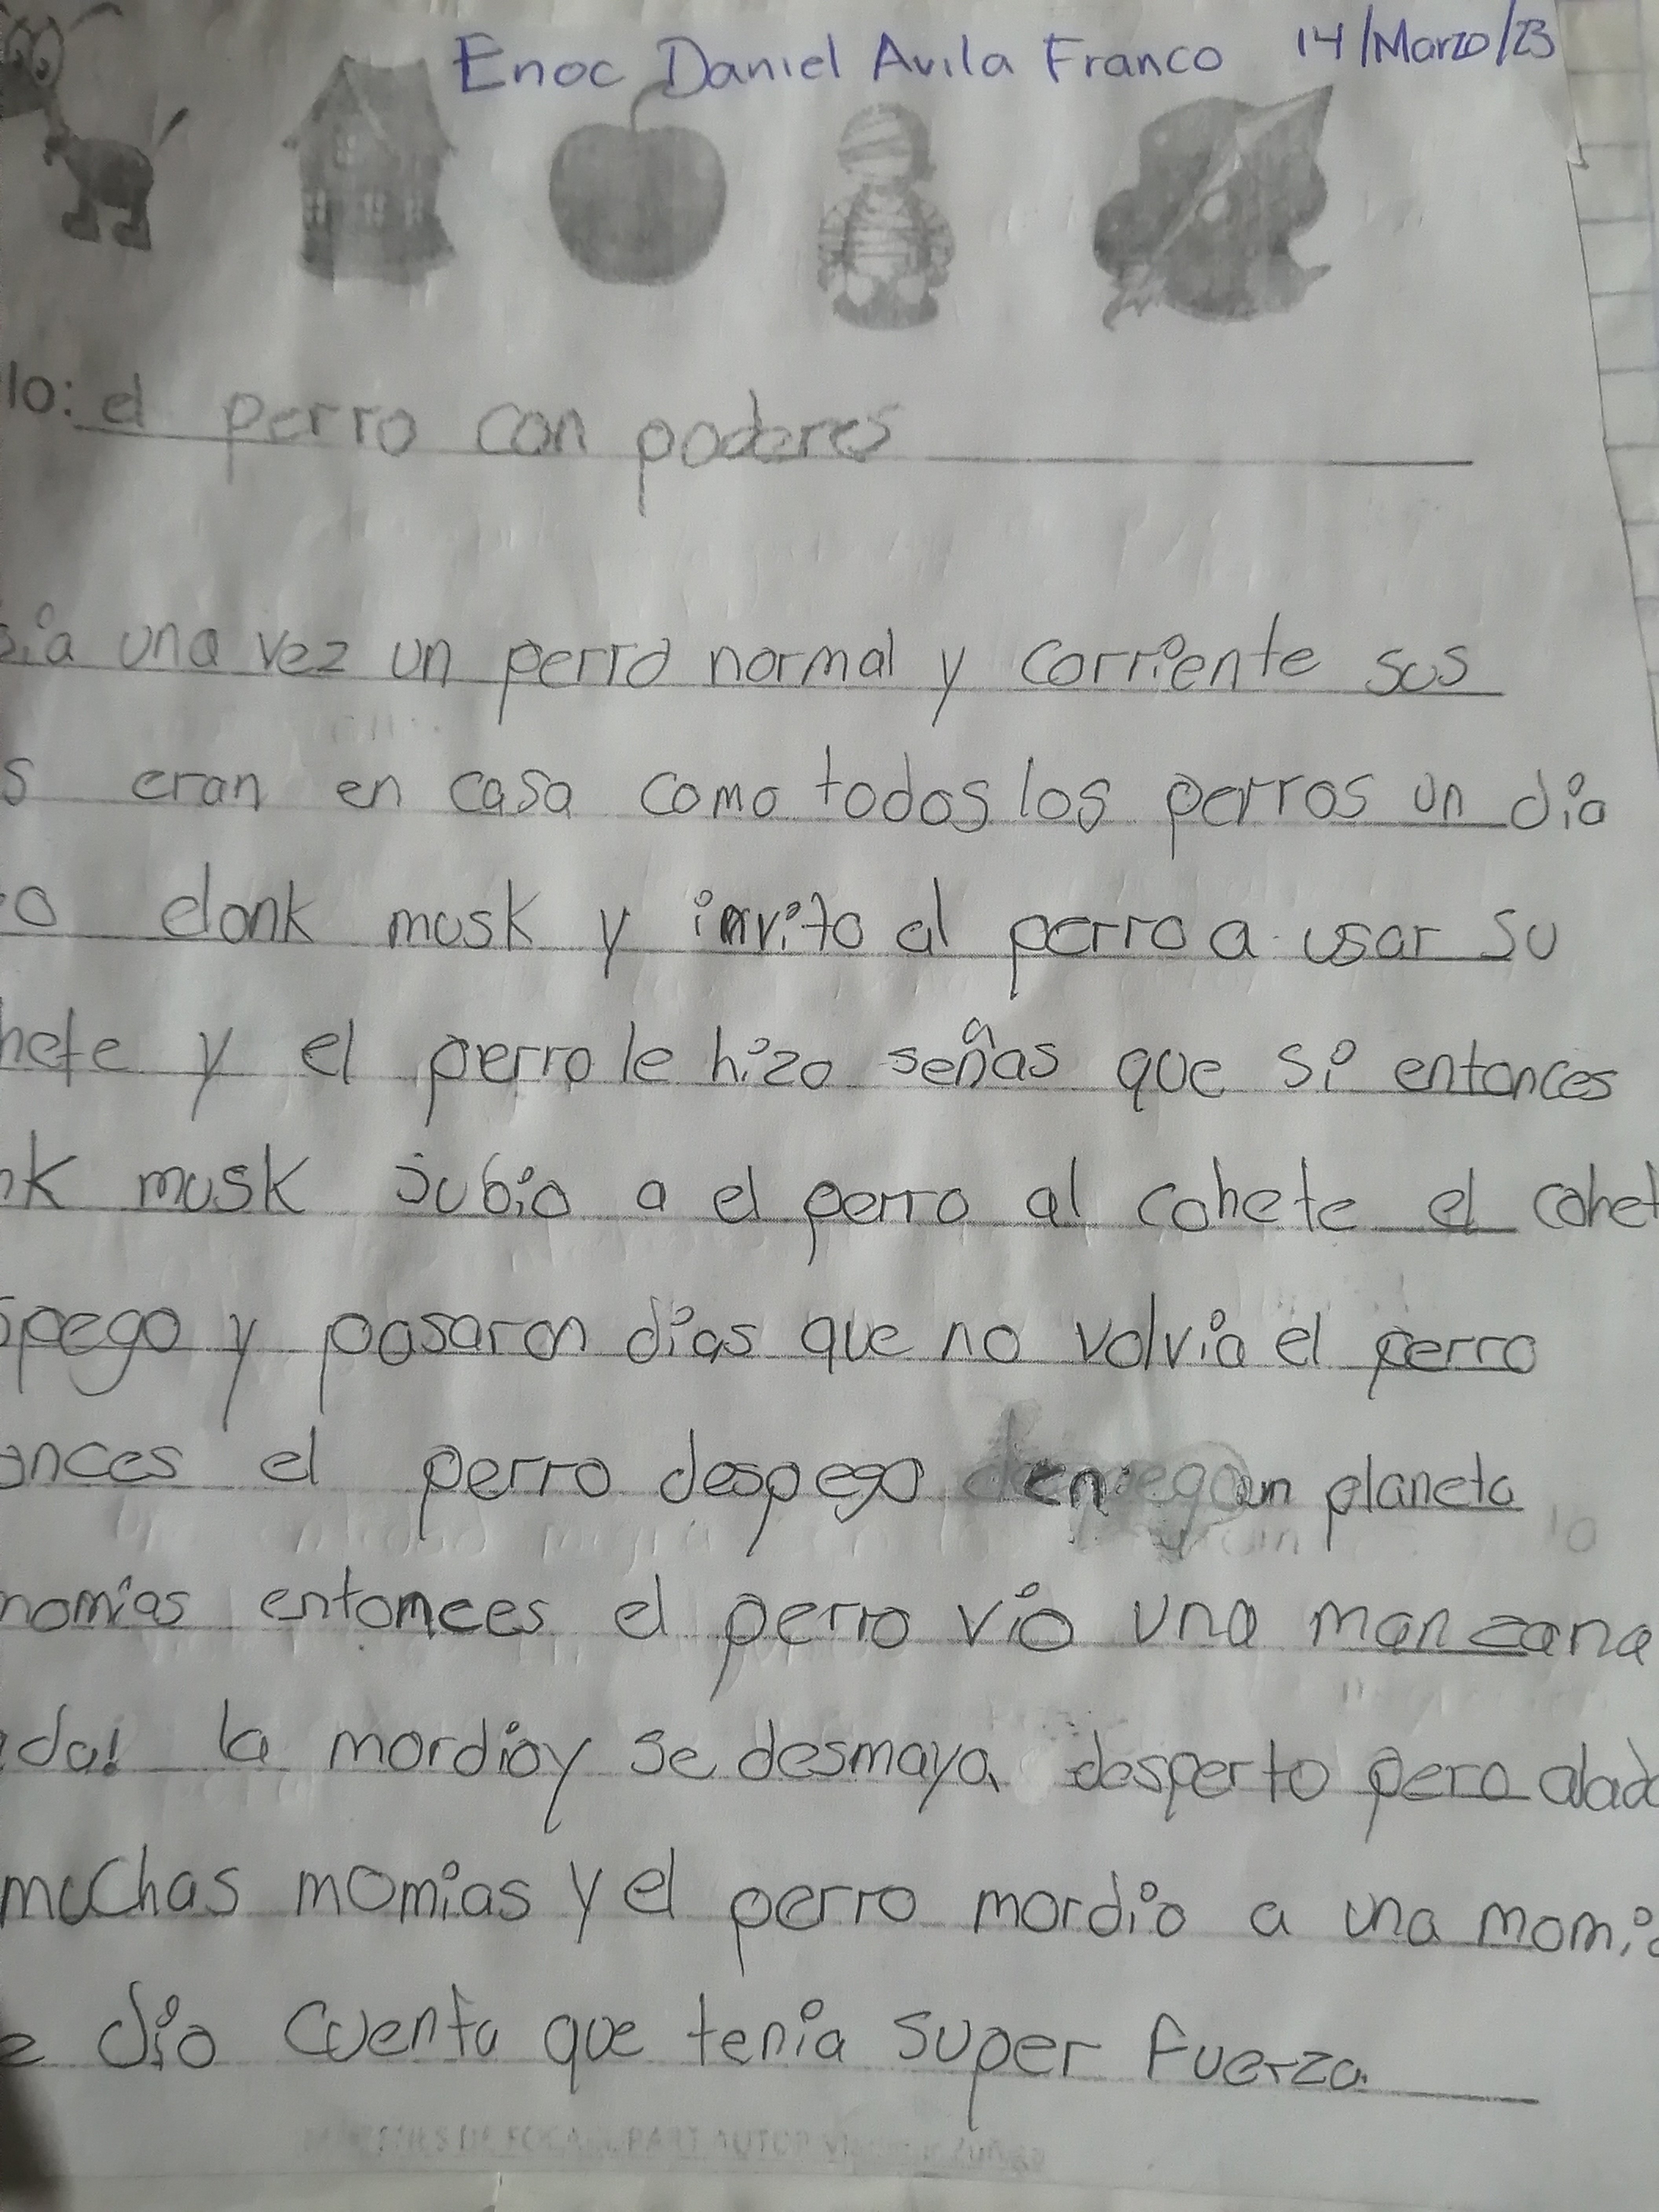 Enoc Daniel Avila Franco 14/Marzo/23
lo: el perro con poderes
una vez un perro normal y corriente sus
s eran en casa como todos los perros un dia
o elonk musk y invito al perro a usar su
hete y el perro le hizo señas que si entonces
nk musk subio a el perro al cohete el cohet
spego y pasaron dias que no volvia el perro
onces el perro despego en un planeta
momias entonces el perro vio una manzana
ada! la mordio y se desmaya desperto pero alado
muchas momias y el perro mordio a una momia
e dio cuenta que tenia super fuerza.